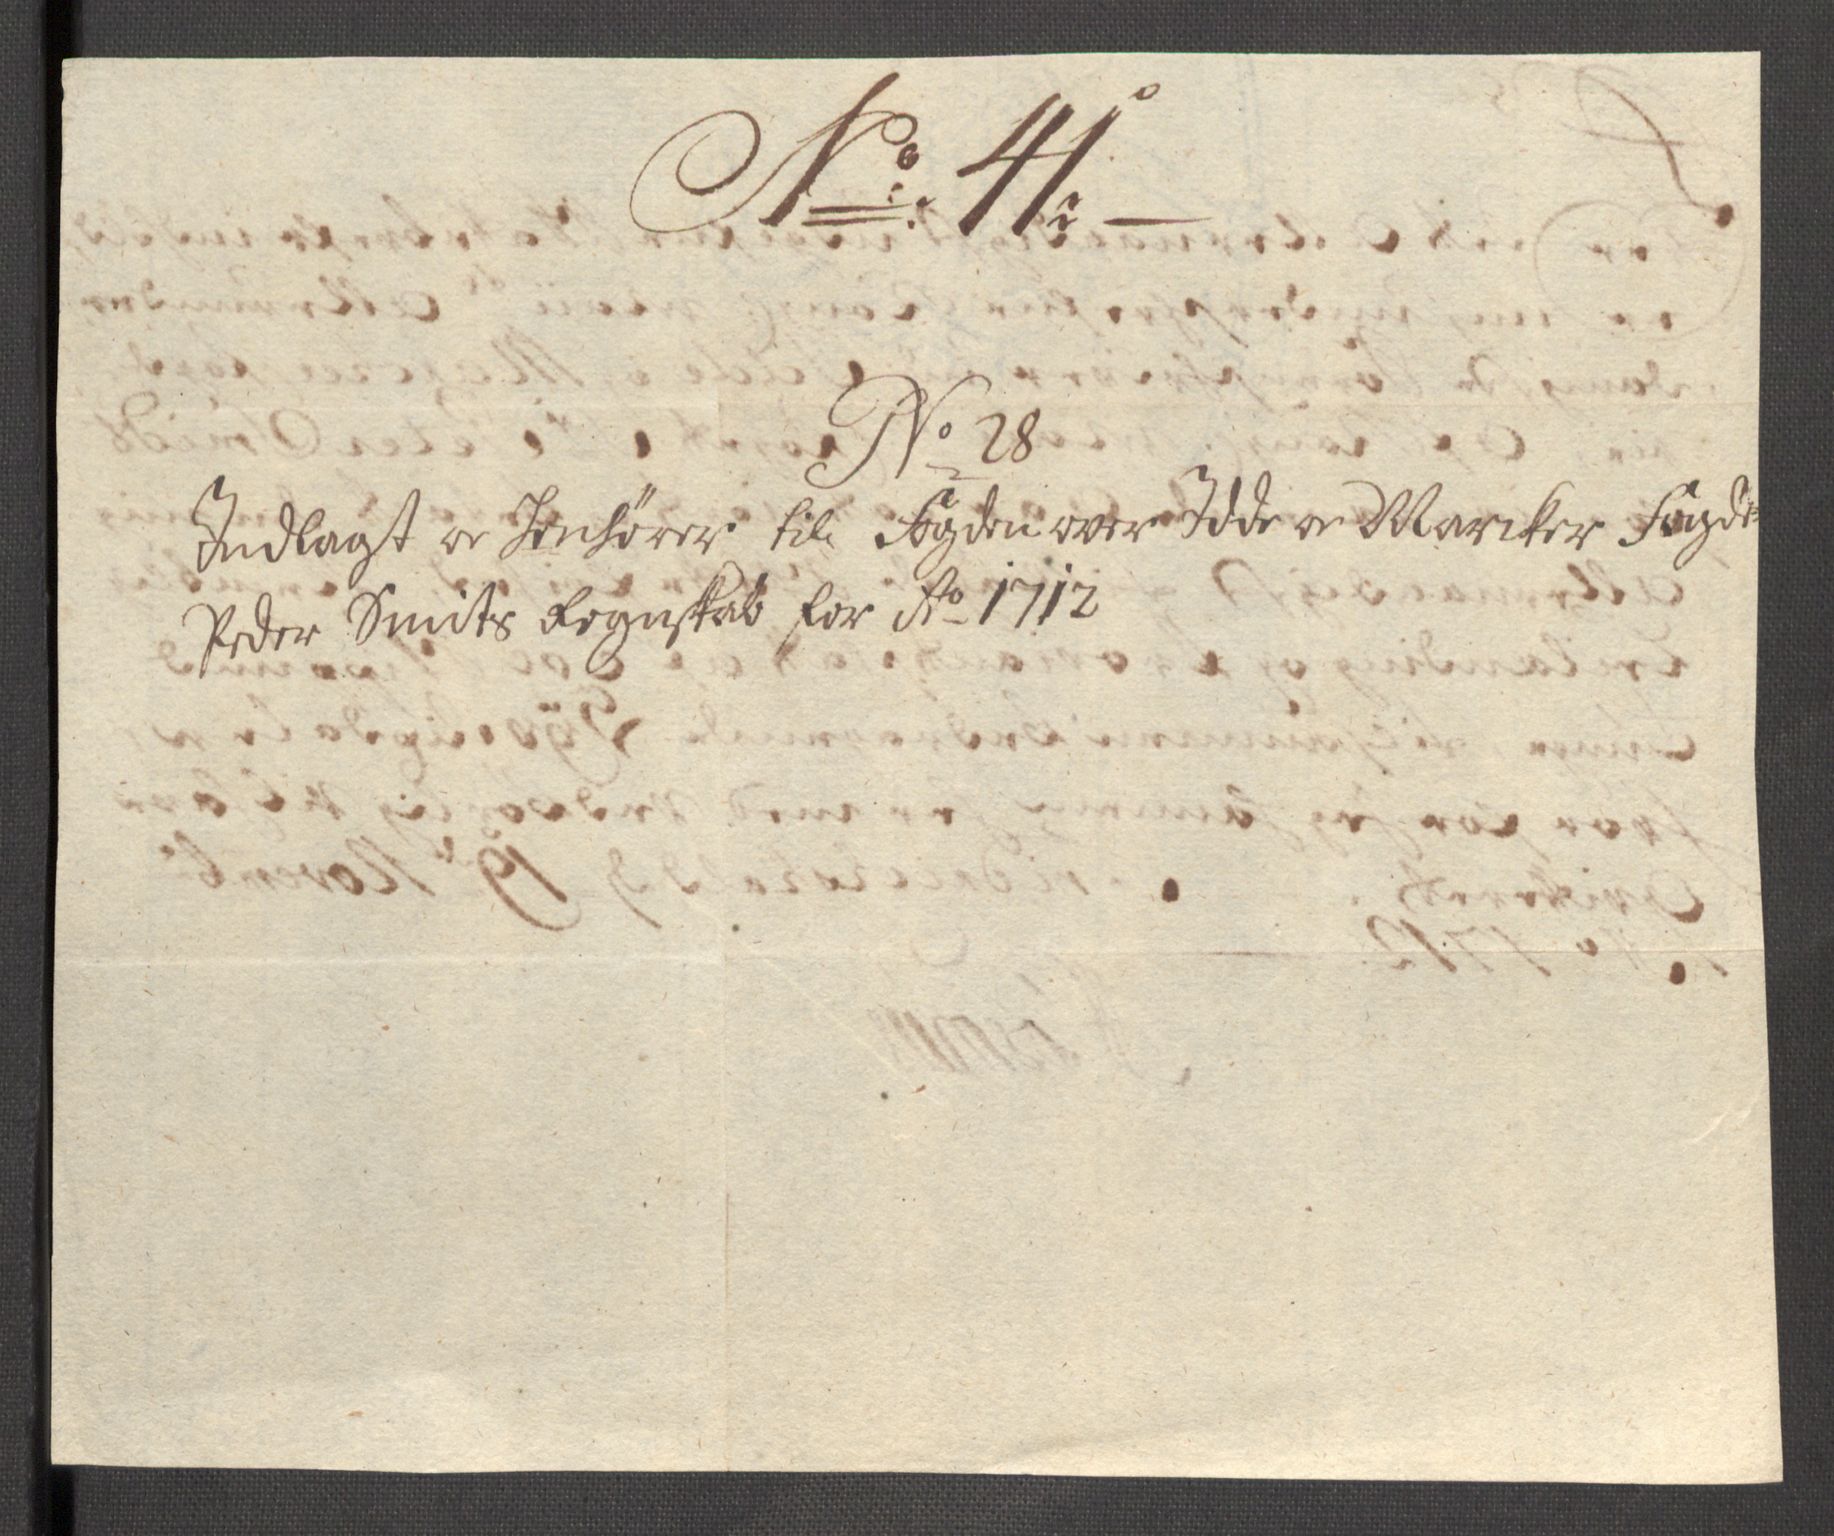 No: 41
No 28
Indlagt oc henhører til Fogden over Idde oc Marcker Fogde-
Peder Smits Regnskab for Ao 1712